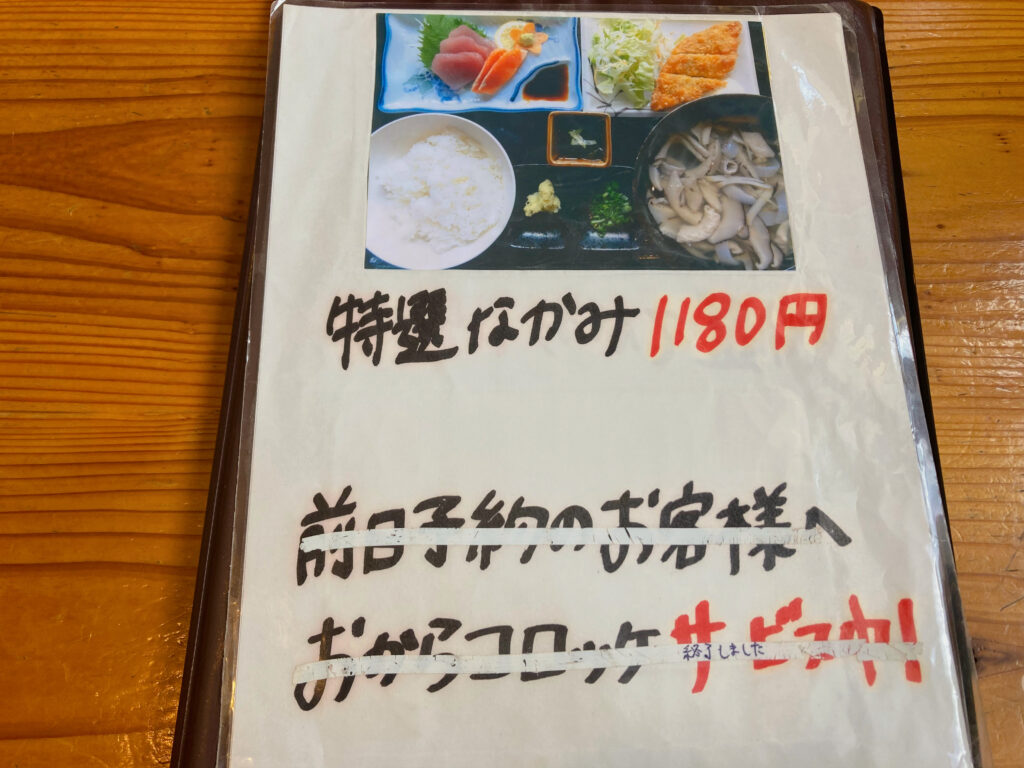 特選なかみ 1180円
前日予約のお客様へ
おからコロッケサービス中!
終了しました